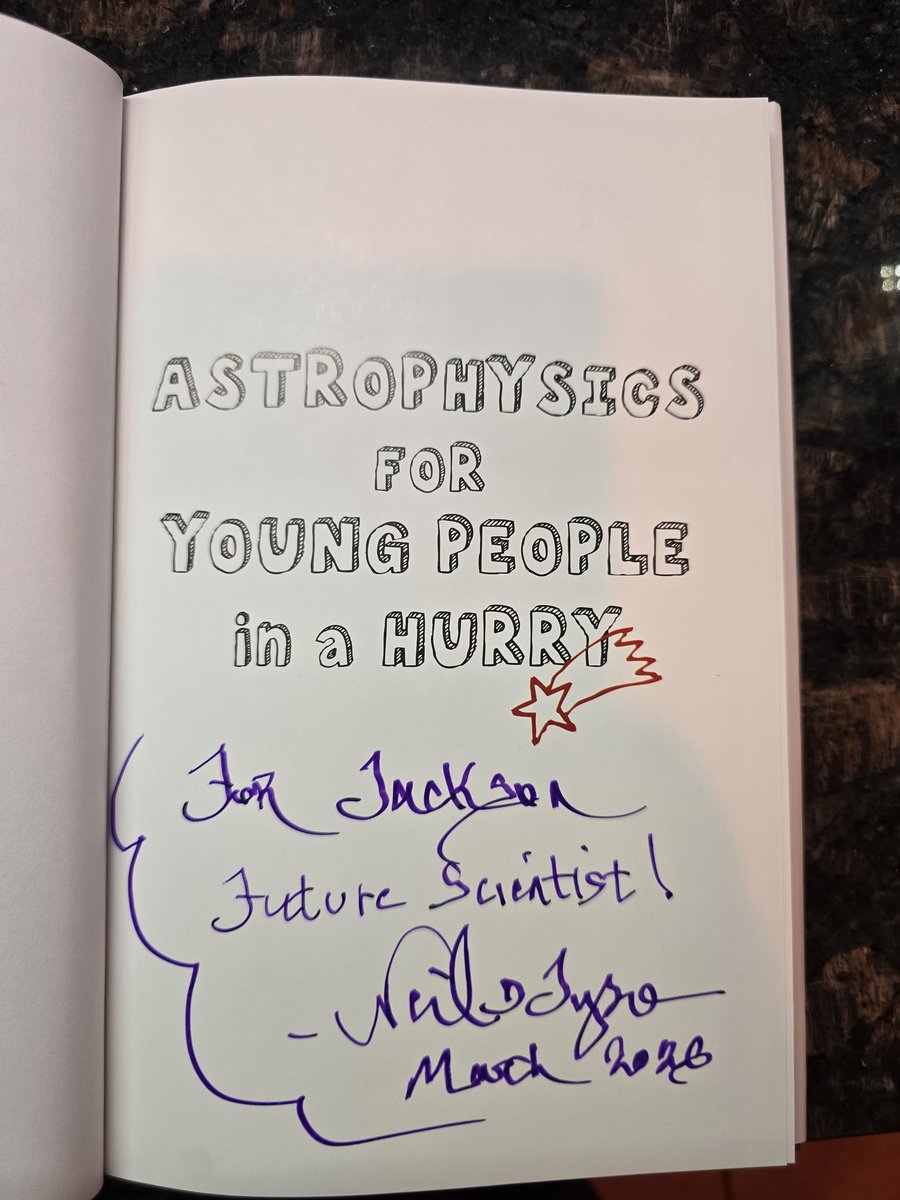 ASTROPHYSICS
FOR
YOUNG PEOPLE
in a HURRY
For Jackson
Future Scientist!
- Neil D Tyson
March 2026